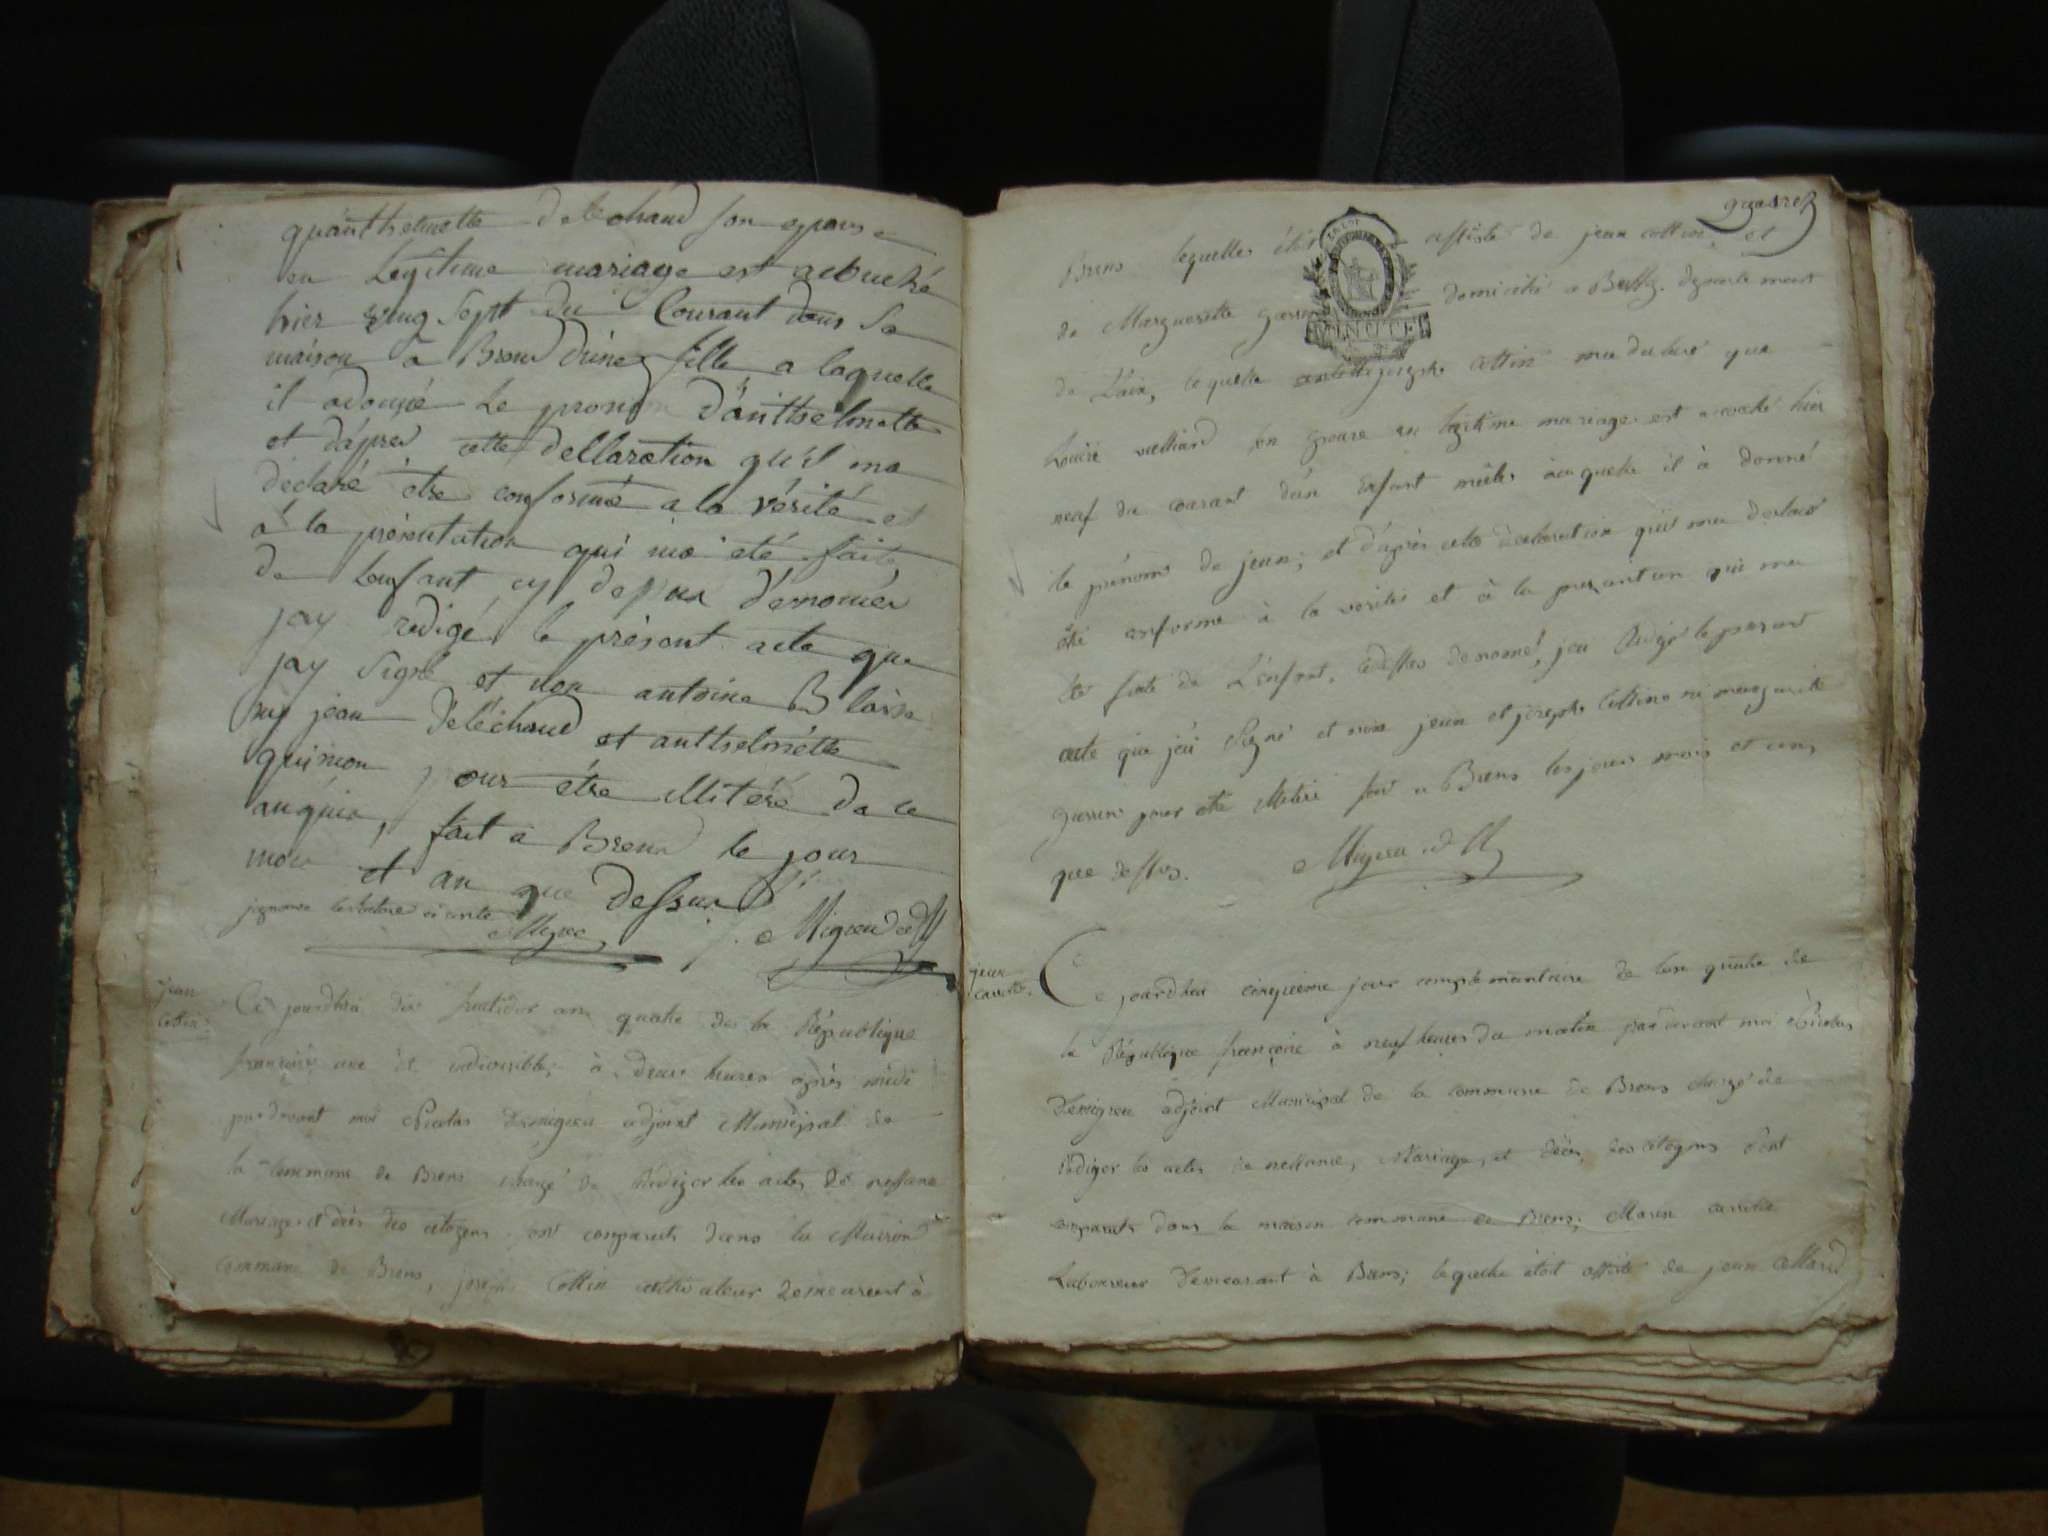 quanthelmette deléchaud son epouse
en Legitime mariage est acouché
hier ving Sept du Courant dans sa
maison a Brens d'une fille a laquelle
il adonné le prenom d'anthelmette
et d'apres cette dellaration qu'il ma
déclaré etre conforme a la vérité et
a la présentation qui ma été faite
de Lenfant cy dessus dénomée
jay redigé le présent acte que
jay signé et non antoine Blaise
ny jean déléchaud et anthelmette
quinon pour étre illitéré de ce
anquis, fait a Brens le jour
mois et an que dessus
Migieu
jean
Cottin
Ce jourdhui dix fructidor an quatre de la République
française une et indivisible, à deux heures après midi
pardevant moi Nicolas Demigieu adjoint Municipal de
la Commune de Brens chargé de Rediger les actes de nessance
Mariages et déces des citogens sont comparuts dans la Maison
Commune de Brens, joseph Cottin cultivateur demeurent à
Brens lequelles étoit assisté de jean cottin, et
MINUTE
de Margueritte domicilié a departement
de L'ain, lequelle joseph cottin ma déclaré que
son epouse en légitime mariage est acouché hier
neuf du courant d'un Enfant mâle auquele il à donné
le prénom de jean; et d'après cette déclaration qu'il ma déclaré
être conforme à la verité et à la presantation qui ma
été faite de L'enfant, dénomé, jai Redigé le present
acte que jai Signé et non jean et joseph Cottin ni marguerite
pour etre illitéré fait a Brens les jours mois et ans
que dessus.
jean
Ce jourdhui cinquieme jour complementaire de lan quatre de
la République françoise à neuf heures du matin pardevant moi Nicolas
Demigieu adjoint Municipal de la commune de Brens chargé de
Rediger les actes de nessance, Mariage, et déces, des citogens sont
comparuts dans la maison commune de Brens; Marin
Laboureur demeurant à Brens; lequelle étoit assisté de jean